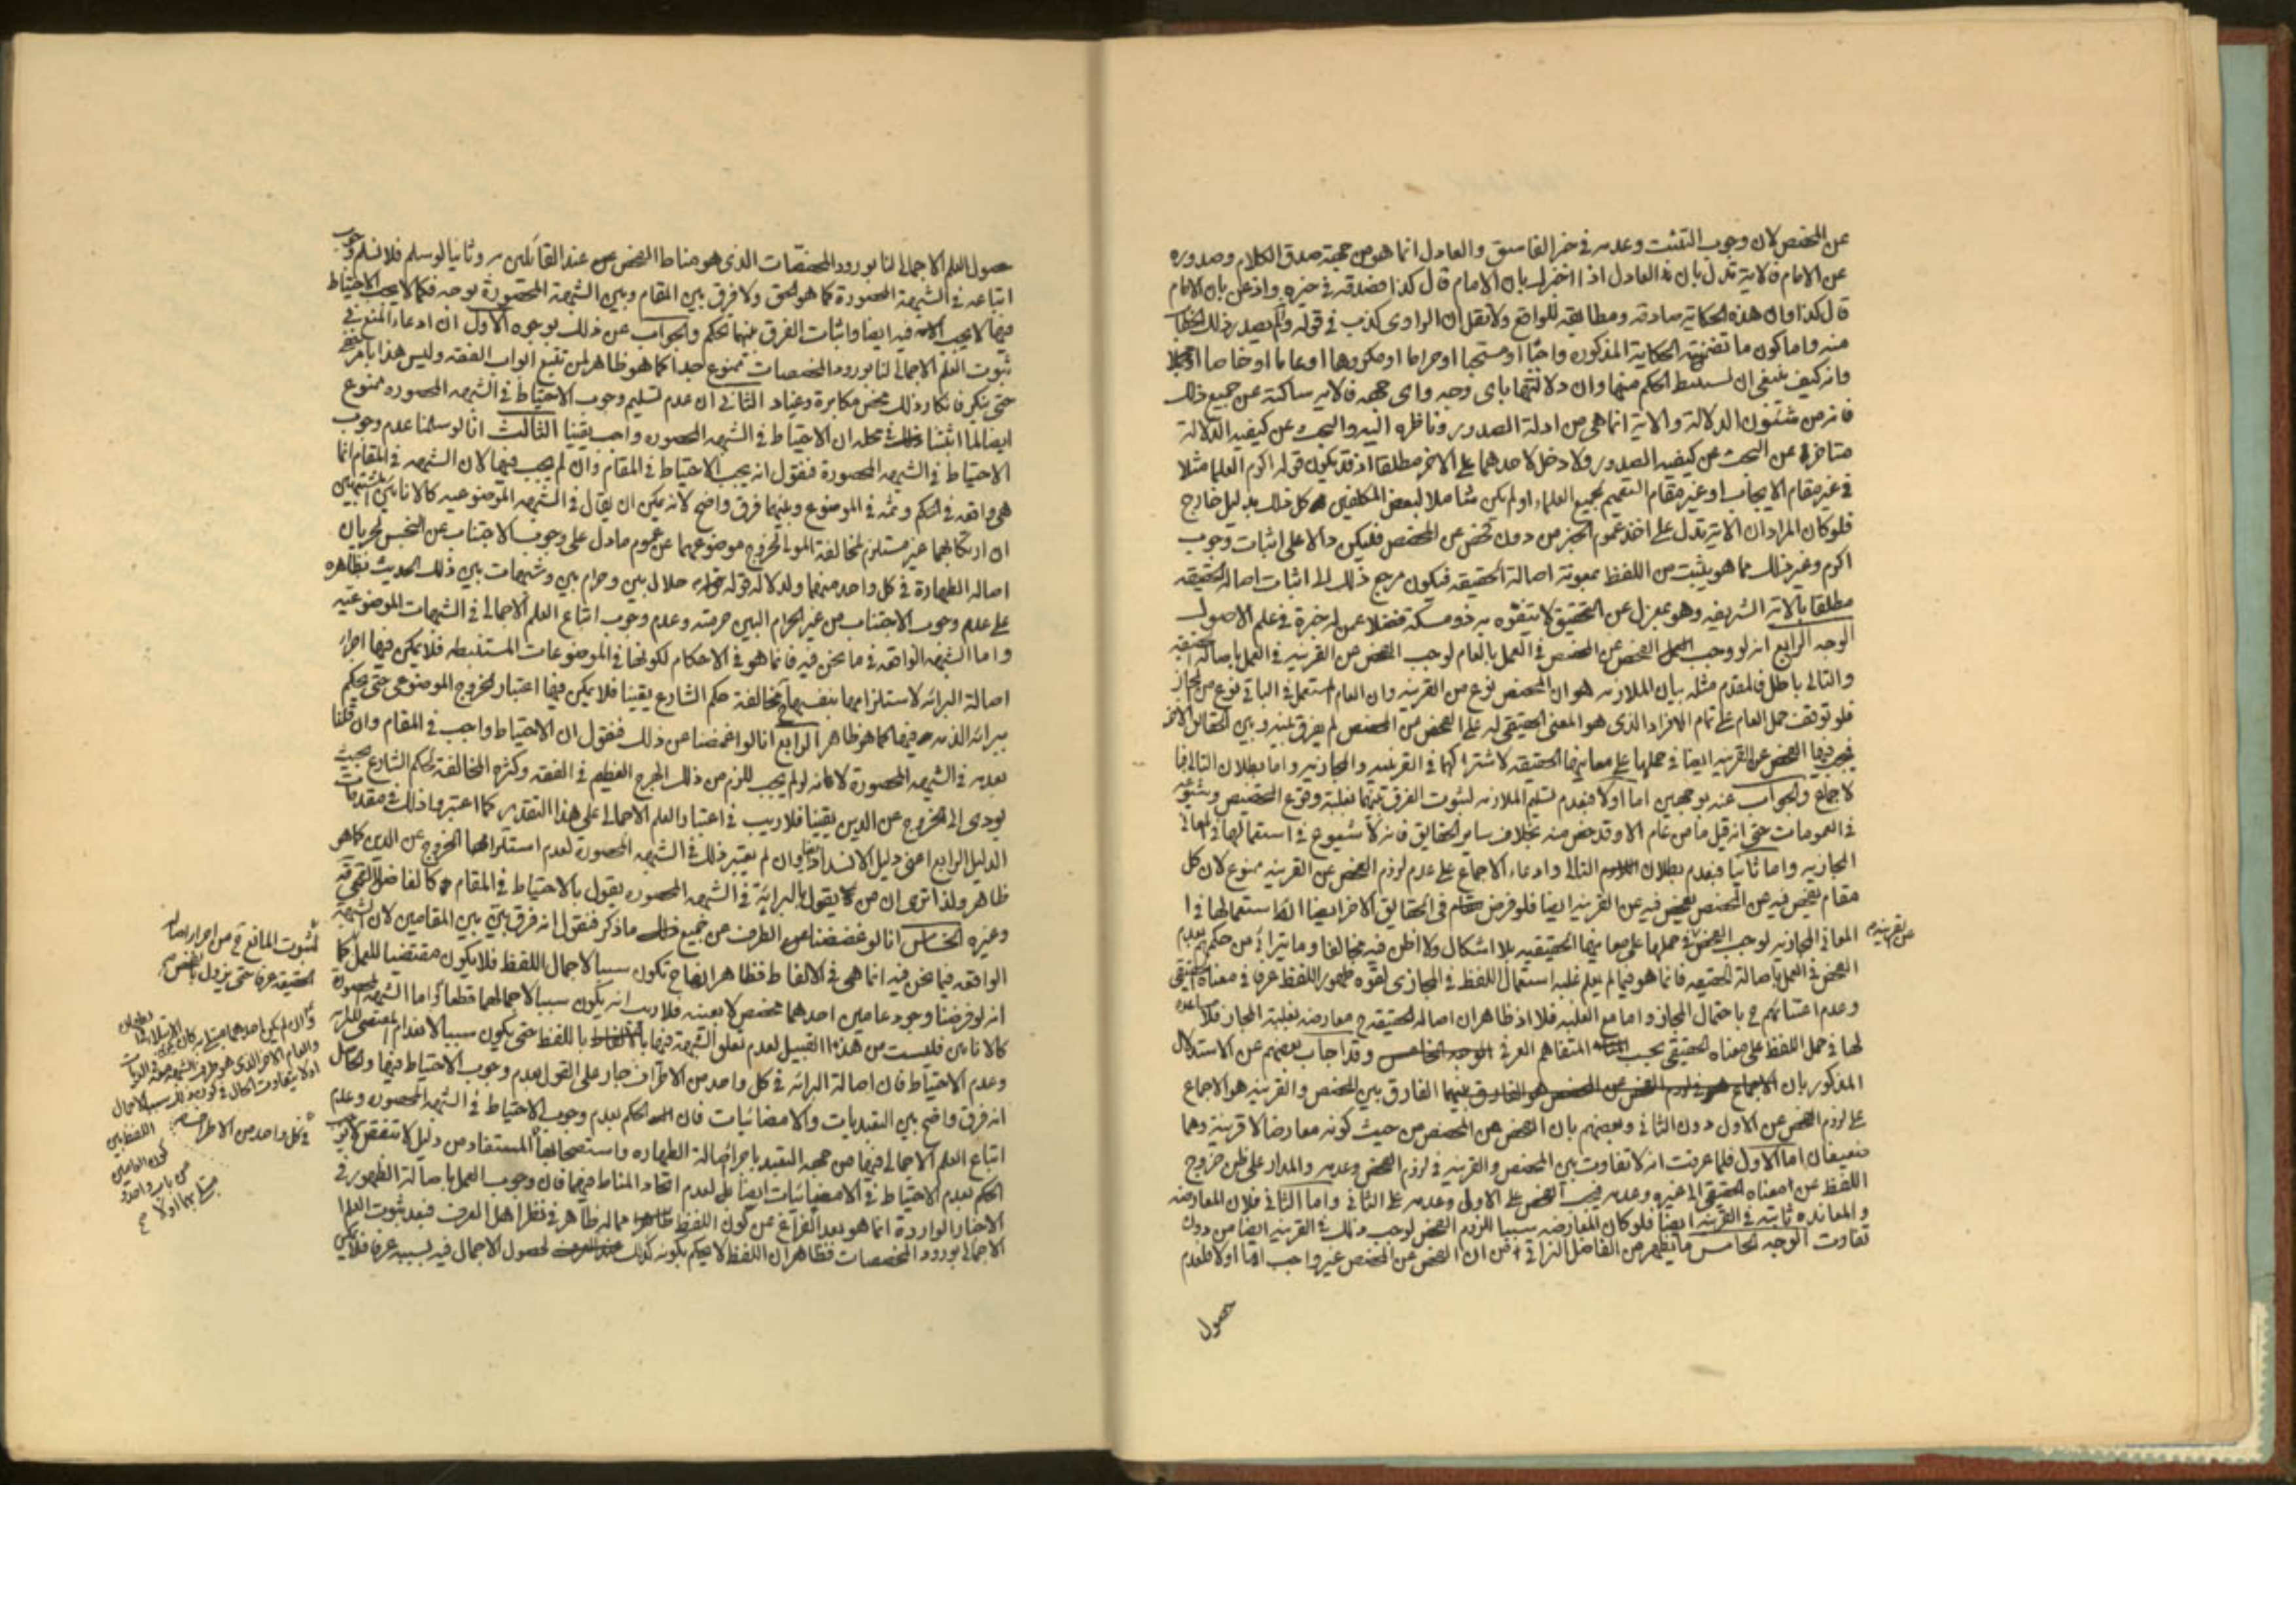 عن المخصص لان وجوب التثبت وعدمه في خبر الفاسق والعادل انما هو من جهة صدق الكلام وصدوره
عن الامام فالاية تدل بان العادل اذا اخبرك بان الامام قال كذا فصدقه في خبره واذعن بان الامام
قال كذا وان هذه الحكاية صادقه ومطابقه للواقع ولا تقل ان الراوى كذب في قوله ولم يصدر ذلك
منه واما كون ما تضمنته الحكاية المذكوره واجبا او مستحبا او حراما او مكروها او عاما او خاصا او
وانه كيف ينبغي ان نستنبط الحكم منها وان دلالتها باى وجه واى جهه فالايه ساكتة عن جميع ذلك
فانه من شئون الدلالة والاية انما هي من ادلة الصدور وناظره اليه والبحث عن كيفيه الدلالة
متاخرة عن البحث عن كيفيه الصدور ولا دخل لاحدهما على الاخر مطلقا اذ قد يكون قوله اكرم العلما مثلا
في غير مقام الايجاب او غير مقام التعميم لجميع العلماء او لم يكن شاملا لبعض المكلفين كل ذلك بدليل خارج
فلو كان المراد ان الاية تدل على اخذ عموم الخبر من دون فحص عن المخصص فليكن دالا على اثبات وجوب
اكرم وغير ذلك مما هو يثبت من اللفظ بمعونة اصالة الحقيقه فيكون مرجع ذلك الى اثبات اصالة الحقيقه
مطلقا بالاية الشريفه وهو بمعزل عن التحقيق لا يتفوه به ذو مسكة فضلا عمن له خبرة في علم الاصول
الوجه الرابع انه لو وجب الفحص عن المخصص في العمل بالعام لوجب الفحص عن القرينه في العمل باصالة الحقيقه
والتالى باطل فالمقدم مثله بيان الملازمه هو ان المخصص نوع من القرينه وان العام المستعمل في الباقي نوع من المجاز
فلو توقف حمل العام على تمام الافراد الذى هو المعنى الحقيقي له على الفحص من المخصص لم يفرق بينه وبين الحقائق الاخر
فيجب فيها الفحص عن القرينه ايضا في حملها على معانيها الحقيقه لاشتراكهما في القرينيه والمجازيه واما بطلان التالى فبا
لاجماع والجواب عنه بوجهين اما اولا فبعدم تسليم الملازمه لثبوت الفرق بينهما بغلبة وقوع التخصيص وشيوعه
في العمومات حتى انه قيل ما من عام الا وقد خص منه بخلاف ساير الحقايق فانه لا شيوع في استعمالها في المعانى
المجازيه واما ثانيا فبعدم بطلان التالى وادعاء الاجماع على عدم لزوم الفحص عن القرينه ممنوع لان كل
مقام يفحص فيه عن المخصص يفحص فيه عن القرينه ايضا فلو فرض في الحقايق الاخر ايضا استعمالها في
المعاني المجازيه لوجب الفحص في حملها على معانيها الحقيقيه بلا اشكال ولا اظن فيه مخالفا وما يترائى من حكمهم بعدم
عن القرينه
الفحص في العمل باصالة الحقيقه فانما هو فيما لم يعلم غلبه استعمال اللفظ في المجازى لقوه ظهور اللفظ عرفا في معناه الحقيقي
وعدم اعتنائهم ح باحتمال المجاز واما مع الغلبه فلا اذ ظاهر ان اصالة الحقيقه ح معارضه بغلبة المجاز فلا
لها في حمل اللفظ على معناه الحقيقي بحسب المتفاهم العرفي وقد اجاب بعضهم عن الاستدلال
المذكور بان الفارق بين المخصص والقرينه هو الاجماع
على لزوم الفحص عن الاول دون الثاني وبعضهم بان الفحص عن المخصص من حيث كونه معارضا لا قرينة وهما
ضعيفان اما الاول فلما عرفت انه لا تفاوت بين المخصص والقرينه في لزوم الفحص وعدمه والمدار على ظن خروج
اللفظ عن معناه الحقيقي الى غيره وعدمه فيجب الفحص على الاول وعدمه على الثاني واما الثاني فلان المعارضه
والمعانده ثابته في القرينه ايضا فلو كان المعارضه سببا للزوم الفحص لوجب ذلك في القرينه ايضا من دون
تفاوت الوجه الخامس ما يظهر من الفاضل النراقي من ان الفحص عن المخصص غير واجب اما اولا فلعدم
حصول
حصول العلم الاجمالى لنا بورود المخصصات الذى هو مناط الفحص عند القائلين به وثانيا لو سلم فلا نسلم وجوب
اتباعه في الشبهة المحصورة كما هو الحق ولا فرق بين المقام وبين الشبهة المحصورة بوجه فكما لا يجب الاحتياط
فيها لا يجب فيه ايضا واثبات الفرق بينهما تحكم والجواب عن ذلك بوجوه الاول ان ادعاء المنع في
ثبوت العلم الاجمالى لنا بورود المخصصات ممنوع جدا كما هو ظاهر لمن تتبع ابواب الفقه وليس هذا بامر
حتى ينكر فانكار ذلك محض مكابرة وعناد الثاني ان عدم تسليم وجوب الاحتياط في الشبهه المحصوره ممنوع
ايضا لما اثبتنا في محله ان الاحتياط في الشبهه المحصوره واجب يقينا الثالث انا لو سلمنا عدم وجوب
الاحتياط في الشبهه المحصورة فنقول انه يجب الاحتياط في المقام وان لم يجب فيها لان الشبهه في المقام انما
هي واقعه في الحكم وثمه في الموضوع وبينهما فرق واضح لانه يمكن ان يقال في الشبهه الموضوعيه كالانائين المشتبهين
ان ارتكابهما غير مستلزم لمخالفة المولى لخروج موضوعهما عن عموم ما دل على وجوب الاجتناب عن النجس لجريان
اصالة الطهارة في كل واحد منهما ولدلالة قوله حلال بين وحرام بين وشبهات بين ذلك الحديث بظاهره
على عدم وجوب الاجتناب من غير الحرام البين حرمته وعدم وجوب اتباع العلم الاجمالى في الشبهات الموضوعيه
واما الشبهه الواقعه في ما نحن فيه فانما هو في الاحكام لكونها في الموضوعات المستنبطه فلا يمكن فيها اجراء
اصالة البرائه لاستلزامها بنفسها مخالفة حكم الشارع يقينا فلا يمكن فيها اعتبار الخروج الموضوعى حتى يحكم
ببرائه الذمه فيها كما هو ظاهر الرابع انا لو اغمضنا عن ذلك فنقول ان الاحتياط واجب في المقام وان قلنا
بعدمه في الشبهه المحصورة لانه لو لم يجب للزم من ذلك الهرج العظيم في الفقه وكثره المخالفة لحكم الشارع بحيث
يودى الى الخروج عن الدين يقينا فلا ريب في اعتبار العلم الاجمالى على هذا التقدير كما اعتبروا ذلك في مقدمات
الدليل الرابع اعنى دليل الانسداد وان لم يعتبر ذلك في الشبهه المحصورة لعدم استلزامها الخروج عن الدين كما هو
ظاهر ولذا ترى ان من يقول بالبرائة في الشبهه المحصوره يقول بالاحتياط في المقام كالفاضل القمي
وغيره الخامس انا لو غضضنا الطرف عن جميع ما ذكر فنقول انه فرق بين بين المقامين لان الشبهة
الواقعه فيما نحن فيه انما هي في الالفاظ فظاهر انها ح تكون سببا لاجمال اللفظ فلا يكون مقتضيا للعمل كما
انه لو فرضنا وجود عامين احدهما مخصص لا بعينه فلا ريب انه يكون سببا لاجمالهما قطعا واما الشبهه المحصورة
كالانائين فليست من هذا القبيل لعدم تعلق الشبهة فيها باللفظ حتى يكون سببا لانعدام المقتضى للبرائه
وعدم الاحتياط فان اصالة البرائه في كل واحد من الاطراف جار على القول بعدم وجوب الاحتياط فيها والحاصل
انه فرق واضح بين التعبديات والامضائيات فان الحكم بعدم وجوب الاحتياط في الشبهه المحصوره وعدم
اتباع العلم الاجمالى فيها من جهه التعبد باجراء اصالة الطهاره واستصحابها المستفاد من دليل لا تنقض لا يوجب
الحكم بعدم الاحتياط في الامضائيات ايضا لعدم اتحاد المناط فيهما فان وجوب العمل باصالة الظهور في
الاخبار الواردة انما هو بعد الفراغ عن كون اللفظ مما له ظاهر في نظر اهل العرف فبعد ثبوت العلم
الاجمالى بورود المخصصات فظاهر ان اللفظ لا يحكم بكونه كذلك لحصول الاجمال فيه بسببه عرفا فلا يمكن
لثبوت المانع من اجراء اصالة
الحقيقه عرفا حتى يزول بالفحص
في كل واحد من الاطراف